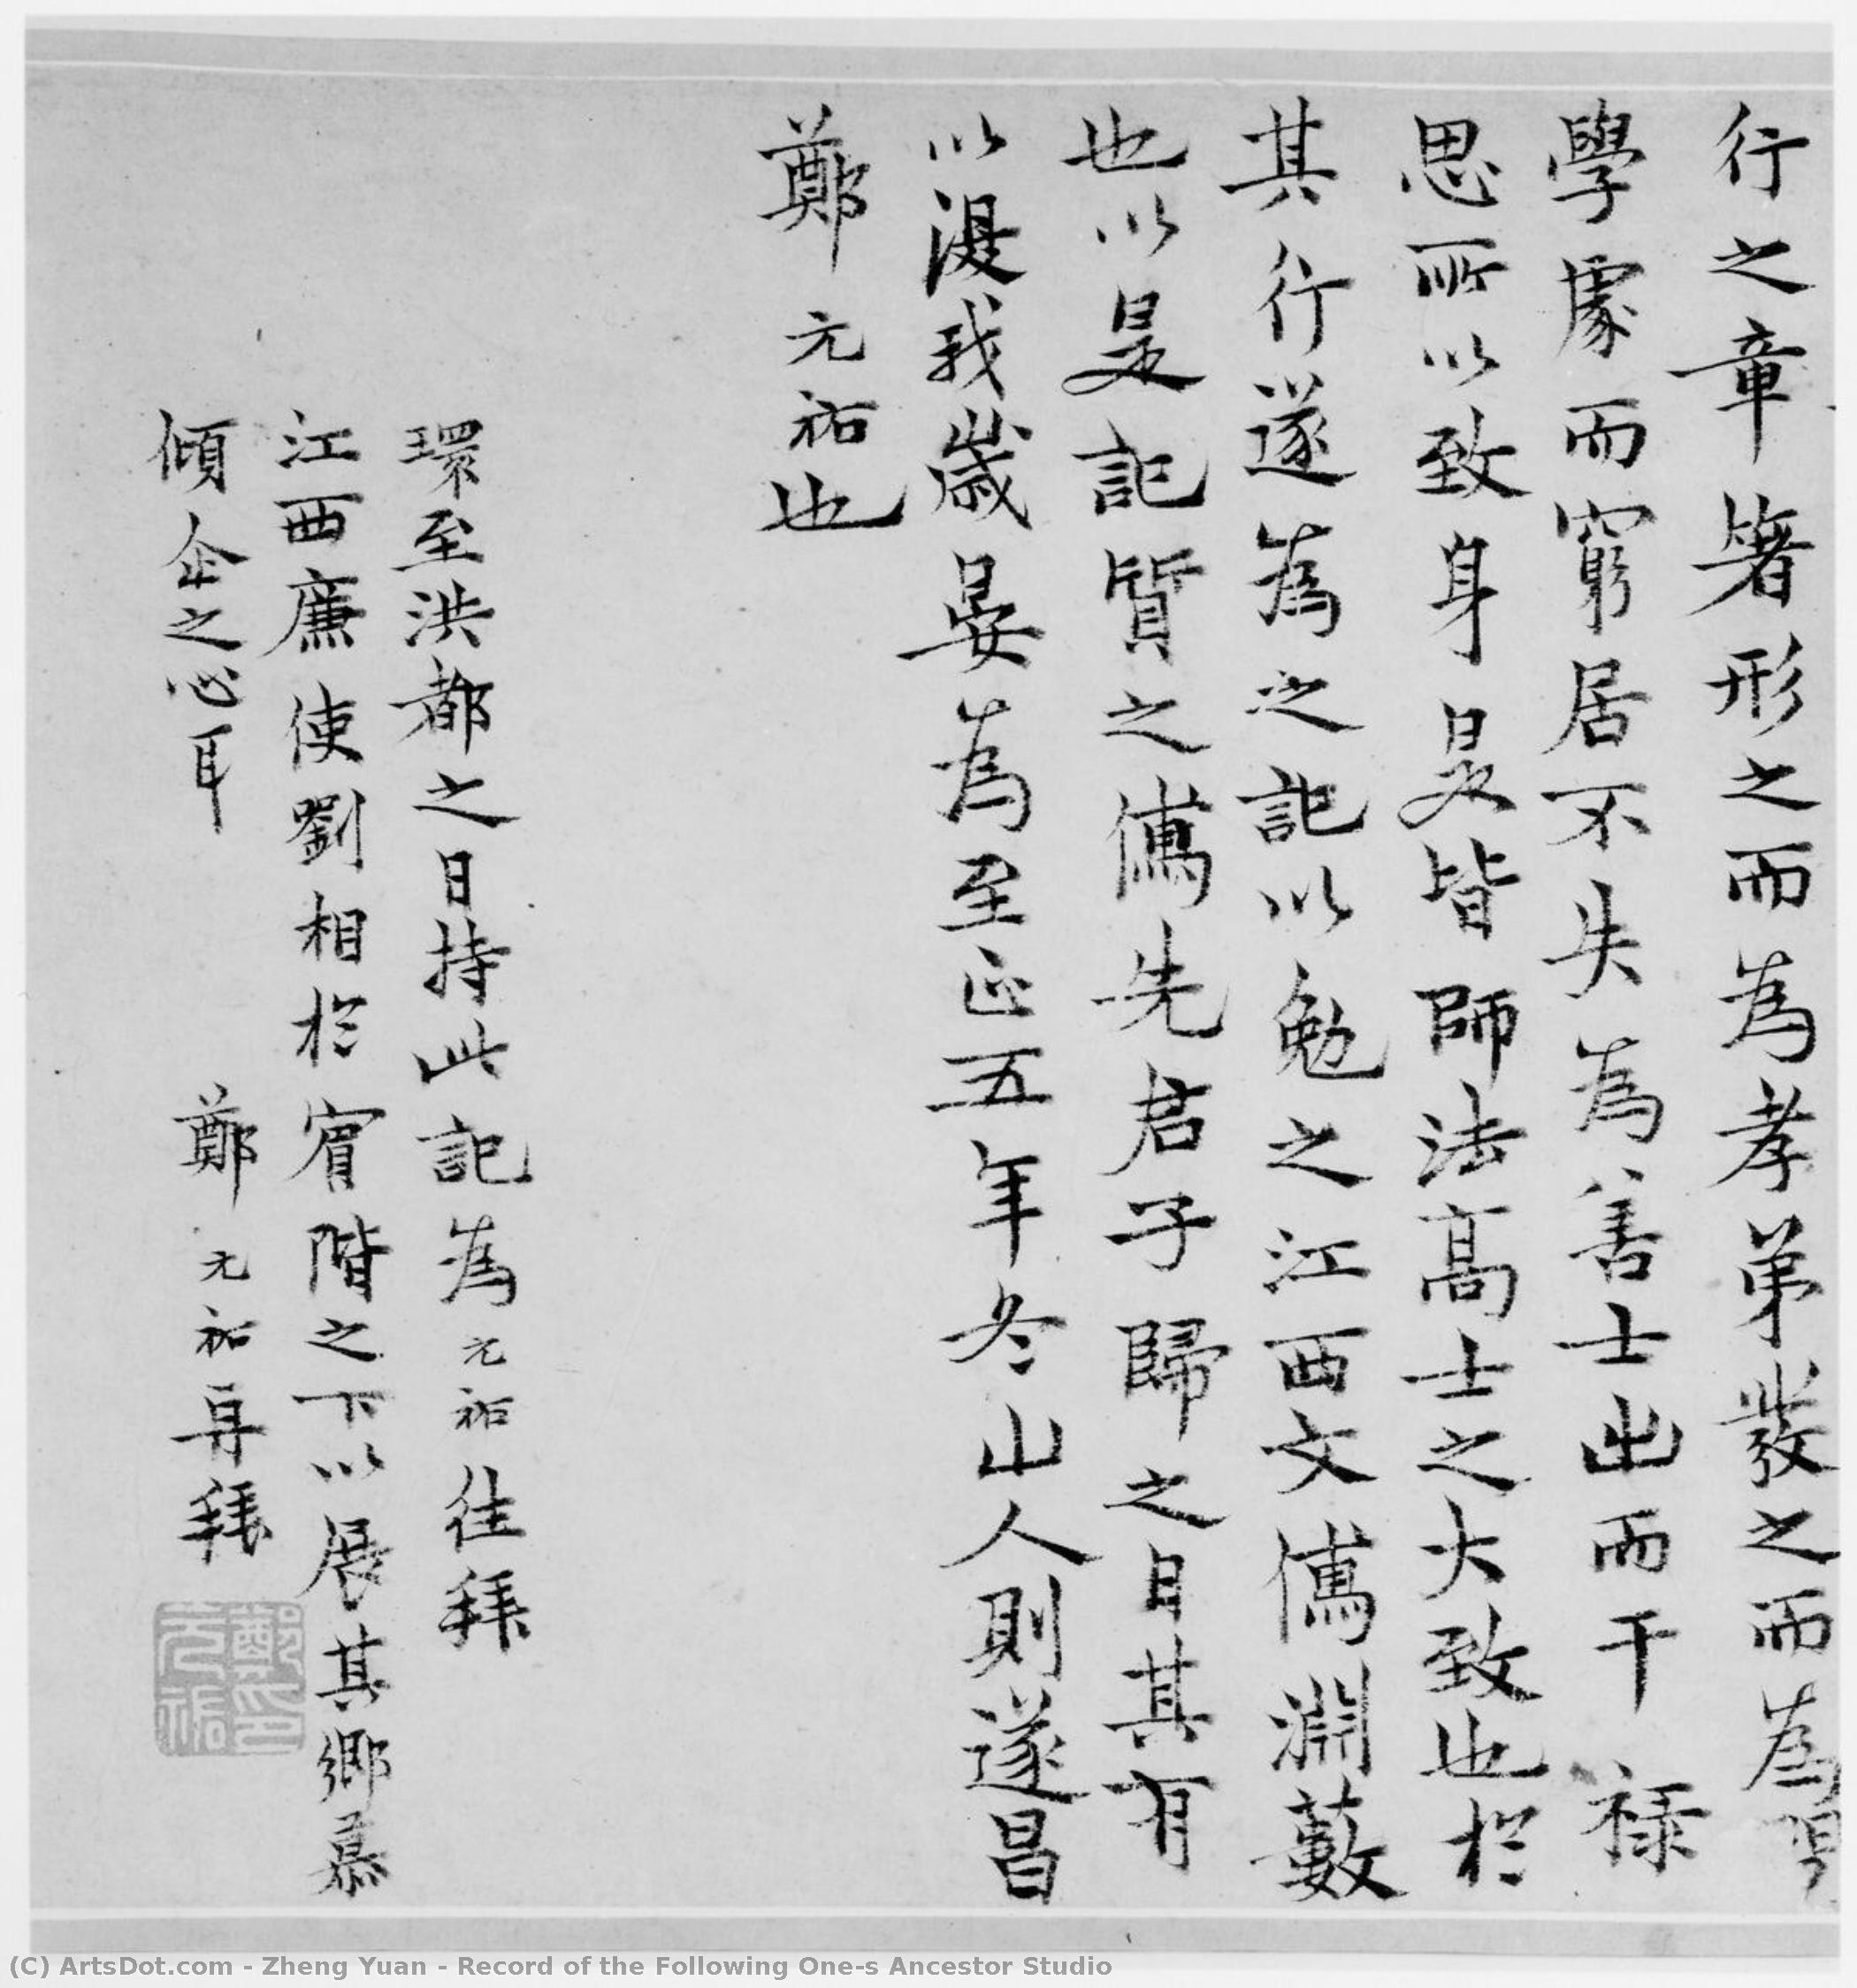 行之章箸形之而為孝弟發之而為
學處而窮居不失為善士出而干祿
思所以致身是皆師法高士之大致也於
其行遂為之記以勉之江西文儒淵藪
也以是記質之儒先君子歸之日其有
以復我歲晏為至正五年冬山人則遂昌
鄭元祐也
環至洪都之日持此記為元祐往拜
江西廉使劉相於賓階之下以展其鄉慕
傾企之心耳
鄭元祐再拜
鄭元祐印
(C) ArtsDot.com - Zheng Yuan - Record of the Following One-s Ancestor Studio